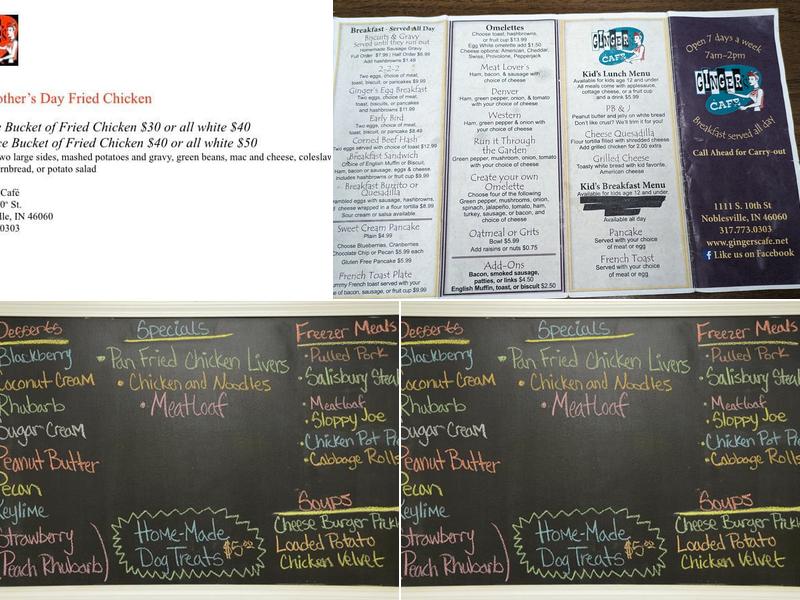 other's Day Fried Chicken
e Bucket of Fried Chicken $30 or all white $40
ce Bucket of Fried Chicken $40 or all white $50
wo large sides, mashed potatoes and gravy, green beans, mac and cheese, coleslaw
rnbread, or potato salad
Café
0th St.
lle, IN 46060
0303
Breakfast - Served All Day
Biscuits & Gravy
Served until they run out
Homemade Sausage Gravy
Full Order $7.99 | Half Order $6.99
Add hashbrowns $1.49
2-2-2
Two eggs, choice of meat,
toast, biscuits, or pancakes $9.99
Ginger's Egg Breakfast
Two eggs, choice of meat,
toast, biscuits, or pancakes
and hashbrowns $11.99
Early Bird
Two eggs, choice of meat,
toast, biscuit, or pancake $8.49
Corned Beef Hash
Two eggs, choice of toast,
Breakfast Sandwich
Choice of English Muffin or Biscuit,
Ham, bacon, or sausage, eggs & cheese
includes hashbrowns or fruit cup $9.99
Breakfast Burrito or
Quesadilla
rambled eggs with sausage, hashbrowns,
cheese wrapped in a flour tortilla $8.99
Sour cream or salsa available
Sweet Cream Pancake
Plain $4.99
Choose Blueberries, Cranberries
Chocolate Chip or Pecan $5.99 each
Gluten Free Pancake $5.99
French Toast Plate
French toast served with your
of bacon, sausage, or fruit cup $9.99
Omelettes
Choose toast, hashbrowns,
or fruit cup $13.99
Egg White omelette add $1.50
Cheese options: American, Cheddar,
Swiss, Provolone, Pepperjack
Meat Lover's
Ham, bacon, & sausage with
choice of cheese
Denver
Ham, green pepper, onion, & tomato
with your choice of cheese
Western
Ham, green pepper & onion with
your choice of cheese
Run it Through
the Garden
Green pepper, mushroom, onion, tomato
with your choice of cheese
Create your own
Omelette
Choose four of the following
Green pepper, mushrooms, onion,
spinach, jalapeño, tomato, ham,
turkey, sausage, or bacon, and
choice of cheese
Oatmeal or Grits
Bowl $5.99
Add raisins or nuts $0.75
Add-Ons
Bacon, smoked sausage,
patties, or links $4.50
English Muffin, toast, or biscuit $2.50
GINGER'S
CAFE
Kid's Lunch Menu
Available for kids age 12 and under.
All meals come with applesauce,
cottage cheese, or a fruit cup
and a drink $5.99
PB & J
Peanut butter and jelly on white bread
Don't like crust? We'll trim it for you!
Cheese Quesadilla
Flour tortilla filled with shredded cheese
Add grilled chicken for 2.00 extra
Grilled Cheese
Toasty white bread with kid favorite,
American cheese
Kid's Breakfast Menu
Available all day
Pancake
Served with your choice
of meat or egg
French Toast
Served with your choice
of meat or egg
Open 7 days a week
7am-2pm
GINGER'S
CAFE
Breakfast served all day
Call Ahead for Carry-out
1111 S. 10th St
Noblesville, IN 46060
317.773.0303
www.gingerscafe.net
Like us on Facebook
Desserts
Blackberry
Coconut Cream
Rhubarb
Sugar Cream
Peanut Butter
Pecan
Keylime
Strawberry
Peach Rhubarb
Specials
Pan Fried Chicken Livers
• Chicken and Noodles
• Meatloaf
Home-Made
Dog Treats $5.00
Freezer Meals
• Pulled Pork
• Salisbury Steak
• Meatloaf
• Sloppy Joe
• Chicken Pot Pie
• Cabbage Rolls
Soups
Cheese Burger Pickle
Loaded Potato
Chicken Velvet
Desserts
Blackberry
Coconut Cream
Rhubarb
Sugar Cream
Peanut Butter
Pecan
Keylime
Strawberry
Peach Rhubarb
Specials
Pan Fried Chicken Livers
• Chicken and Noodles
• Meatloaf
Home-Made
Dog Treats $5.00
Freezer Meals
• Pulled Pork
• Salisbury Steak
• Meatloaf
• Sloppy Joe
• Chicken Pot Pie
• Cabbage Rolls
Soups
Cheese Burger Pickle
Loaded Potato
Chicken Velvet